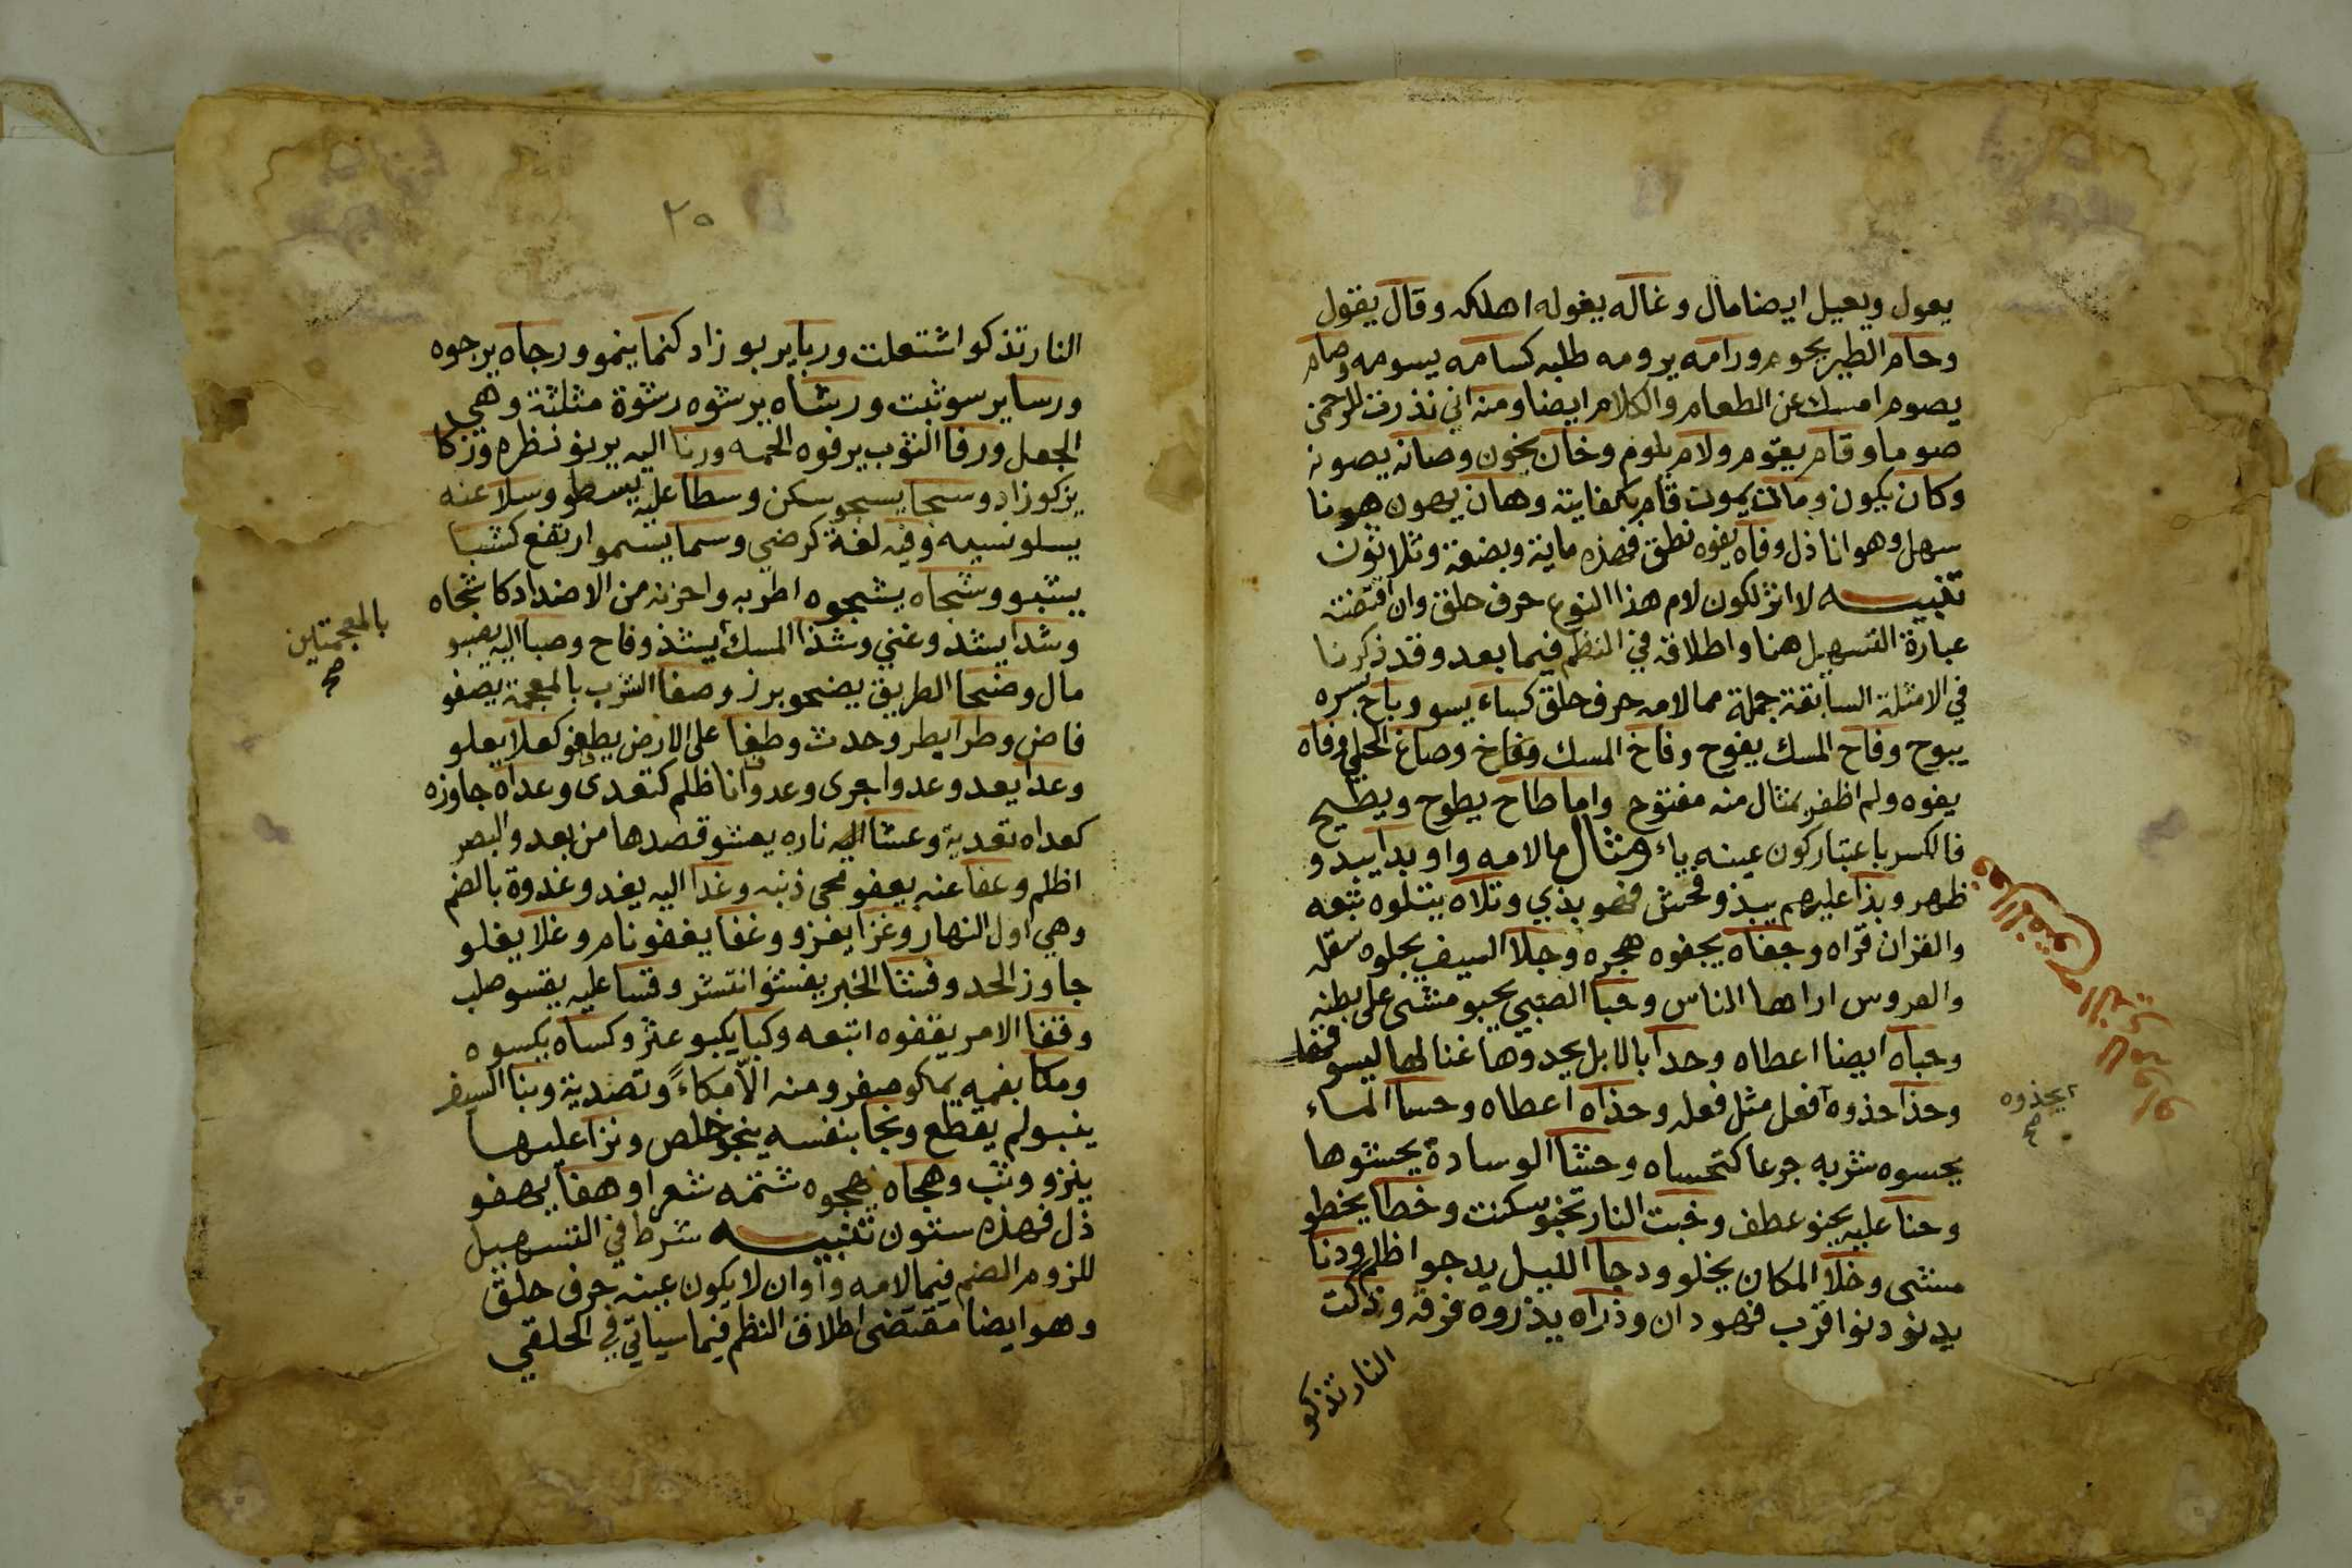 يعول ويعيل ايضا مال وغاله يغوله اهلكه وقال يقول
وحام الطير يحوم ورامه يرومه طلبه كسامه يسومه وصام
يصوم امسك عن الطعام والكلام ايضا ومنه اني نذرت للرحمن
صوما وقام يقوم ولام يلوم وخان يخون وصانه يصونه
وكان يكون ومانت يمون قام بكفايته وهان يهون هونا
سهل وهوانا ذل وفاه يفوه نطق فهذه ماية وبضعة وثلاثون
تنبيه لا اثر لكون لام هذا النوع حرف حلق وان اقتضته
عبارة التسهيل هنا واطلاقه في النظم فيما بعد وقد ذكرنا
في الامثلة السابقة جملة مما لامه حرف حلق كساء يسو وباح بسره
يبوح وفاح المسك يفوح وفاخ المسك وصاغ الحلي وفاه
يفوه ولم اظفر بمثال منه مفتوح واما طاح يطوح ويطيح
فالكسر باعتبار كون عينه ياء مثال ما لامه واو بدا يبدو
ظهر وبذا عليهم يبذو فحش فهو بذي وتلاه يتلوه تبعه
والقران قراه وجفاه يجفوه هجره وجلا السيف يجلوه سقله
والعروس اراها الناس وحبا الصبي يحبو مشى على بطنه
وحباه ايضا اعطاه وحدا بالابل يحدوها غنا لها ليسوقها
وحذا حذوه افعل مثل فعله وحذاه اعطاه وحسا الماء
يحسوه شربه جرعا كتحساه وحشا الوسادة يحشوها
وحنا عليه يحنو عطف وخبت النار تخبو سكنت وخطا يخطو
مشى وخلا المكان يخلو ودجا الليل يدجوا اظلم ودنا
يدنو دنوا قرب فهو دان وذراه يذروه فرقه وذكت
النار تذكو
يحذوه
صح
٢٥
النار تذكو اشتعلت وربا يربو زاد كنما ينمو ورجاه يرجوه
ورسا يرسو ثبت ورشاه يرشوه رشوة مثلثة وهي
الجعل ورفا الثوب يرفوه لحمه ورنا اليه يرنو نظره وزكا
يزكو زاد وسجا يسجو سكن وسطا عليه يسطو وسلا عنه
يسلو نسيه وفيه لغة كرضي وسما يسموا ارتفع كشبا
يشبو وشجاه يشجوه اطربه واحزنه من الاضداد كاشجاه
وشدا يشدو غنى وشذا المسك يشذو فاح وصبا اليه يصبو
مال وضحا الطريق يضحو برز وصفا الشرب بالمعجمة يصفو
فاض وطرا يطرو حدث وطفا على الارض يطفو كعلا يعلو
وعدا يعدو عدوا جرى وعدوانا ظلم كتعدى وعداه جاوزه
كعداه تعدية وعشا اليه ناره يعشو قصدها من بعد والبصر
اظلم وعفا عنه يعفو محى ذنبه وغدا اليه يغدو غدوة بالضم
وهي اول النهار وغزا يغزو وغفا يغفو نام وغلا يغلو
جاوز الحد وفشا الخبر يفشو انتشر وقسا عليه يقسو صلب
وقفا الامر يقفوه اتبعه وكبا يكبو عثر وكساه يكسوه
ومكا بفمه يمكو صفر ومنه الا مكاءً وتصدية ونبا السيف
ينبو لم يقطع ونجا بنفسه ينجو خلص ونزا عليها
ينزو وثب وهجاه يهجوه شتمه شعرا وهفا يهفو
ذل فهذه ستون تنبيه شرط في التسهيل
للزوم الضم فيما لامه واو ان لا يكون عينه حرف حلق
وهو ايضا مقتضى اطلاق النظم فيما سياتي في الحلقي
بالمعجمتين
صح